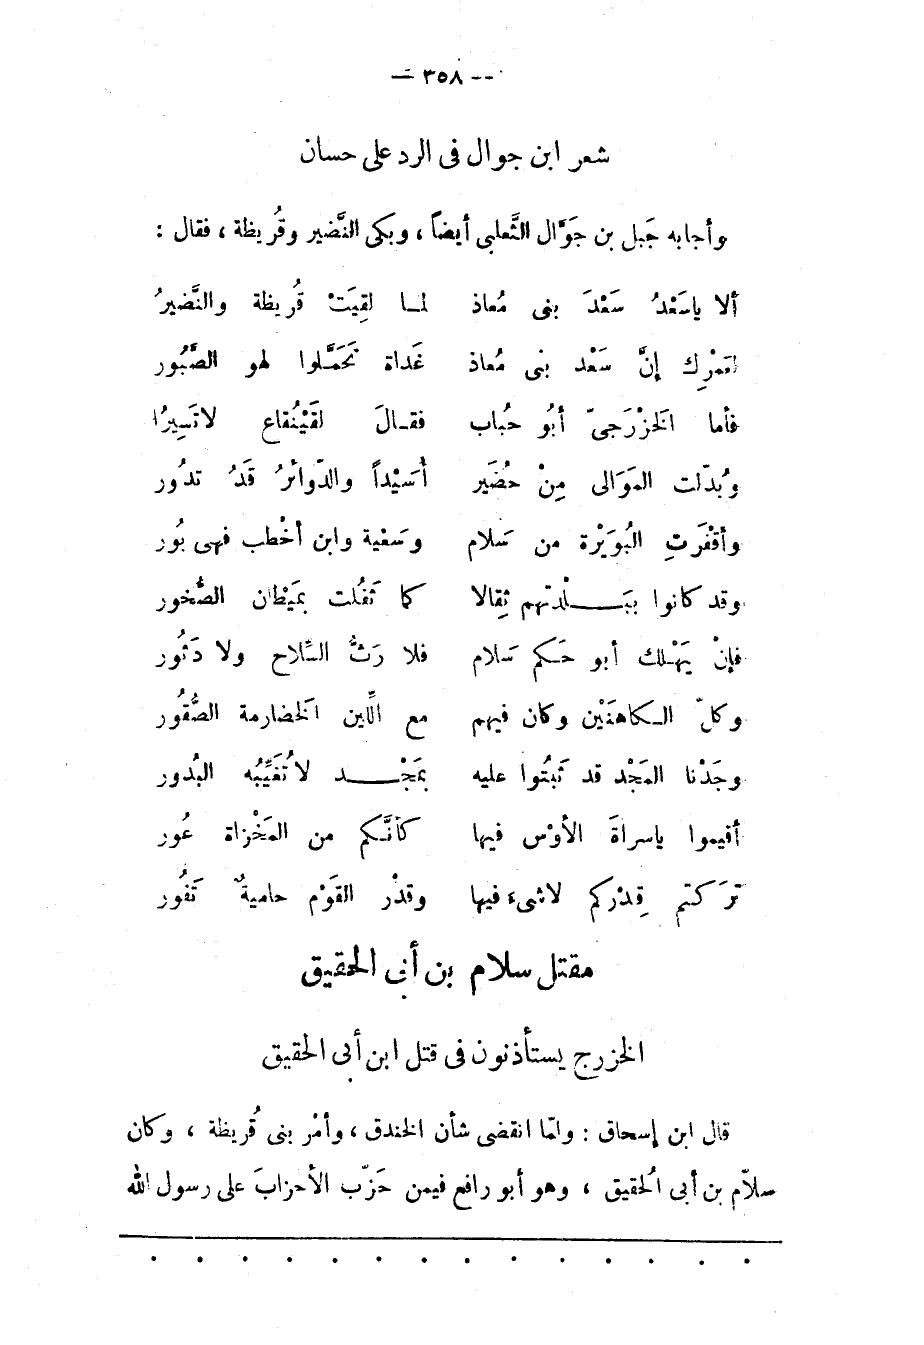 -- ٣٥٨ --
شعر ابن جوال فى الرد على حسان
وأجابه جَبل بن جَوَّال الثَّعلبى أيضاً ، وبكى النَّضير وقُريظة ، فقال :
ألا ياسَعْدُ سَعْدَ بنى مُعاذ لمـا لقِيَتْ قُريظة والنَّضيرُ
لعَمْرِك إنَّ سَعْد بنى مُعاذ غَداة تَحَمَّلوا لهو الصَّبُور
فأما الخَزْرَجىّ أبُو حُباب فقـالَ لقَيْنُقاع لاتَسِيرُا
وبُدّلت المَوَالى مِنْ حُضَير أُسَيْداً والدّوائرُ قَدُ تدُور
وأقْفَرَتِ البُوَيْرة من سَلام وسَعْية وابن أخْطب فهى بُور
وقد كانوا ببَـــلْدتهم ثِقالا كما ثَقُلت بمَيْطان الصُّخور
فإنْ يَهْـلك أبو حَـكم سَلام فلا رَثُّ السِّلاح ولا دَثُور
وكلّ الـكاهنَيْن وكان فيهم مع الِّلين الخَضارمة الصُّقُور
وجَدْنا المَجْد قد ثَبَتُوا عليه بمَجْـــد لاتُغَيِّبُه البُدور
أقيموا ياسراةَ الأوْس فيها كأنَّـكم من المَخْزاة عُور
تَرَكتم قِدْركم لاشىء فيها وقدْر القَوْم حاميةٌ تَفُور
مقتل سلام بن أبى الحقيق
الخزرج يستأذنون فى قتل ابن أبى الحقيق
قال ابن إسحاق : ولمّا انقضى شأن الخندق ، وأمْر بنى قُريظة ، وكان
سلاّم بن أبى الُحقيق ، وهو أبو رافع فيمن حَزّب الأحزابَ على رسول الله